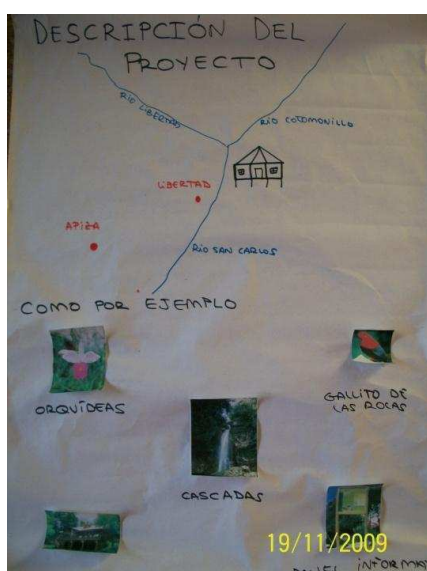 DESCRIPCIÓN DEL
PROYECTO
RÍO LIBERTAD
RÍO COTOMONILLO
LIBERTAD
APIZA
RÍO SAN CARLOS
COMO POR EJEMPLO
ORQUÍDEAS
GALLITO DE
LAS ROCAS
CASCADAS
19/11/2009